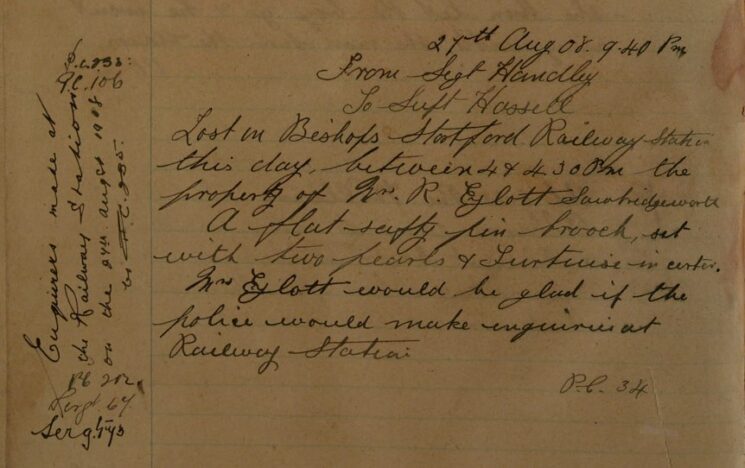 27th Aug 08. 9.40 Pm
From Sergt Handley
To Supt Hassell
Lost in Bishops Stortford Railway Station
this day, between 4 & 4.30 Pm the
property of Mr. R. Eglott Sawbridgeworth
A flat safty pin brooch, set
with two pearls & Turtuise in center.
Mr Eglott would be glad if the
police would make enquiries at
Railway Station.
P.C. 34
P.C. 233.
P.C. 106
Enquirers made at
the Railway Station
on the 27th augst 1908
by P.C. 285.
PC 202.
Sergt. 67
Serg.